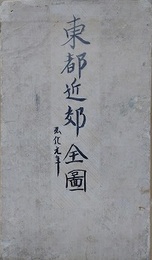 東都近郊全圖
弘化元年